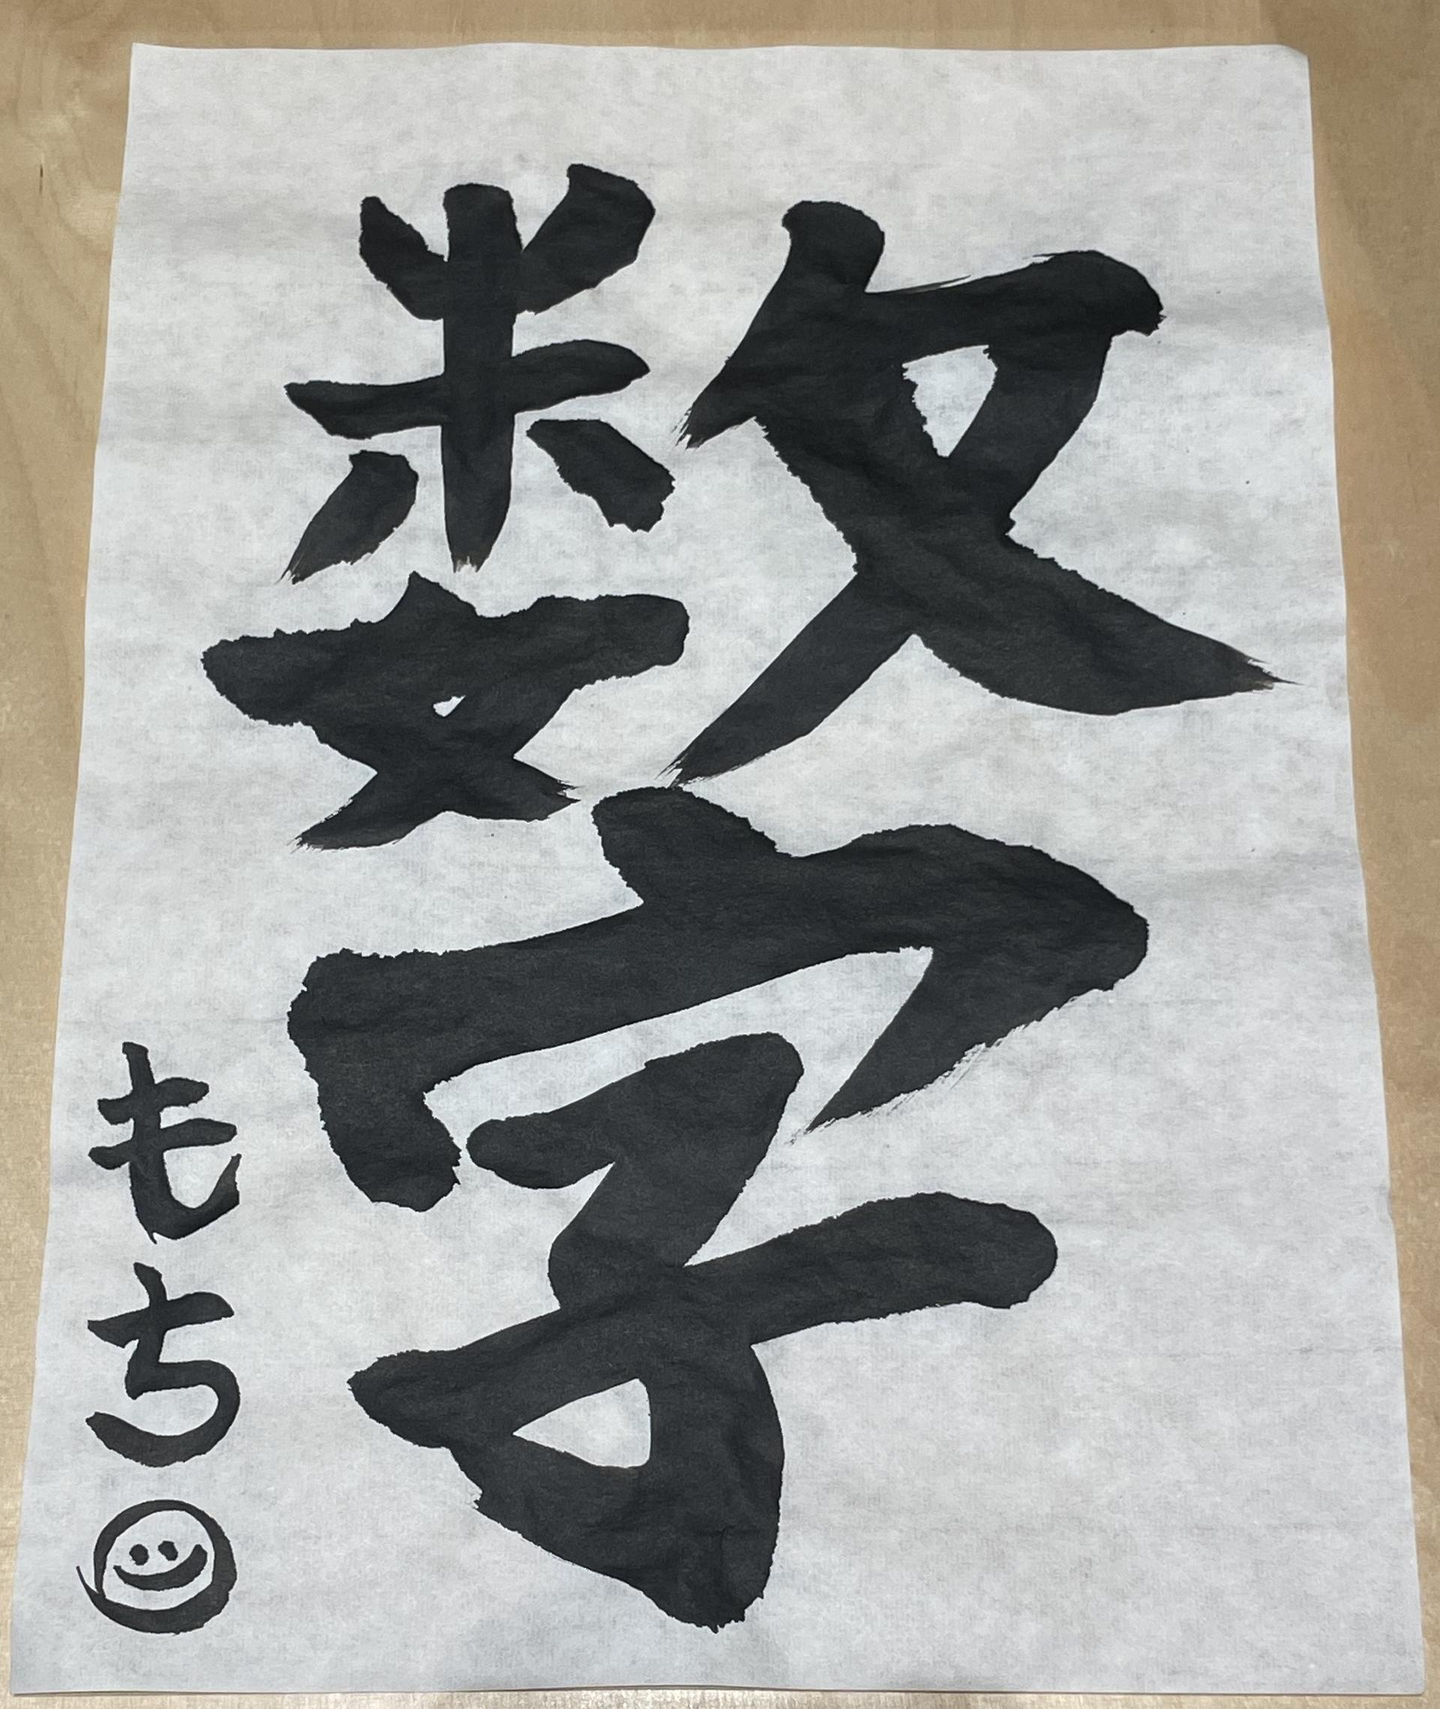 数字
もち